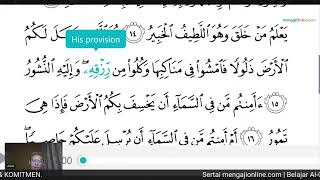 mengajionline.com
His provision
يَعْلَمُ مَنْ خَلَقَ وَهُوَ اللَّطِيفُ الْخَبِيرُ ١٤ هُوَ الَّذِي جَعَلَ لَكُمُ
الْأَرْضَ ذَلُولًا فَامْشُوا فِي مَنَاكِبِهَا وَكُلُوا مِن رِّزْقِهِ ۖ وَإِلَيْهِ النُّشُورُ
١٥ ءَأَمِنتُم مَّن فِي السَّمَاءِ أَن يَخْسِفَ بِكُمُ الْأَرْضَ فَإِذَا هِيَ
تَمُورُ ١٦ أَمْ أَمِنتُم مَّن فِي السَّمَاءِ أَن يُرْسِلَ عَلَيْكُمْ حَاصِبًا ۖ
& KOMITMEN.
Sertai mengajionline.com | Belajar Al-